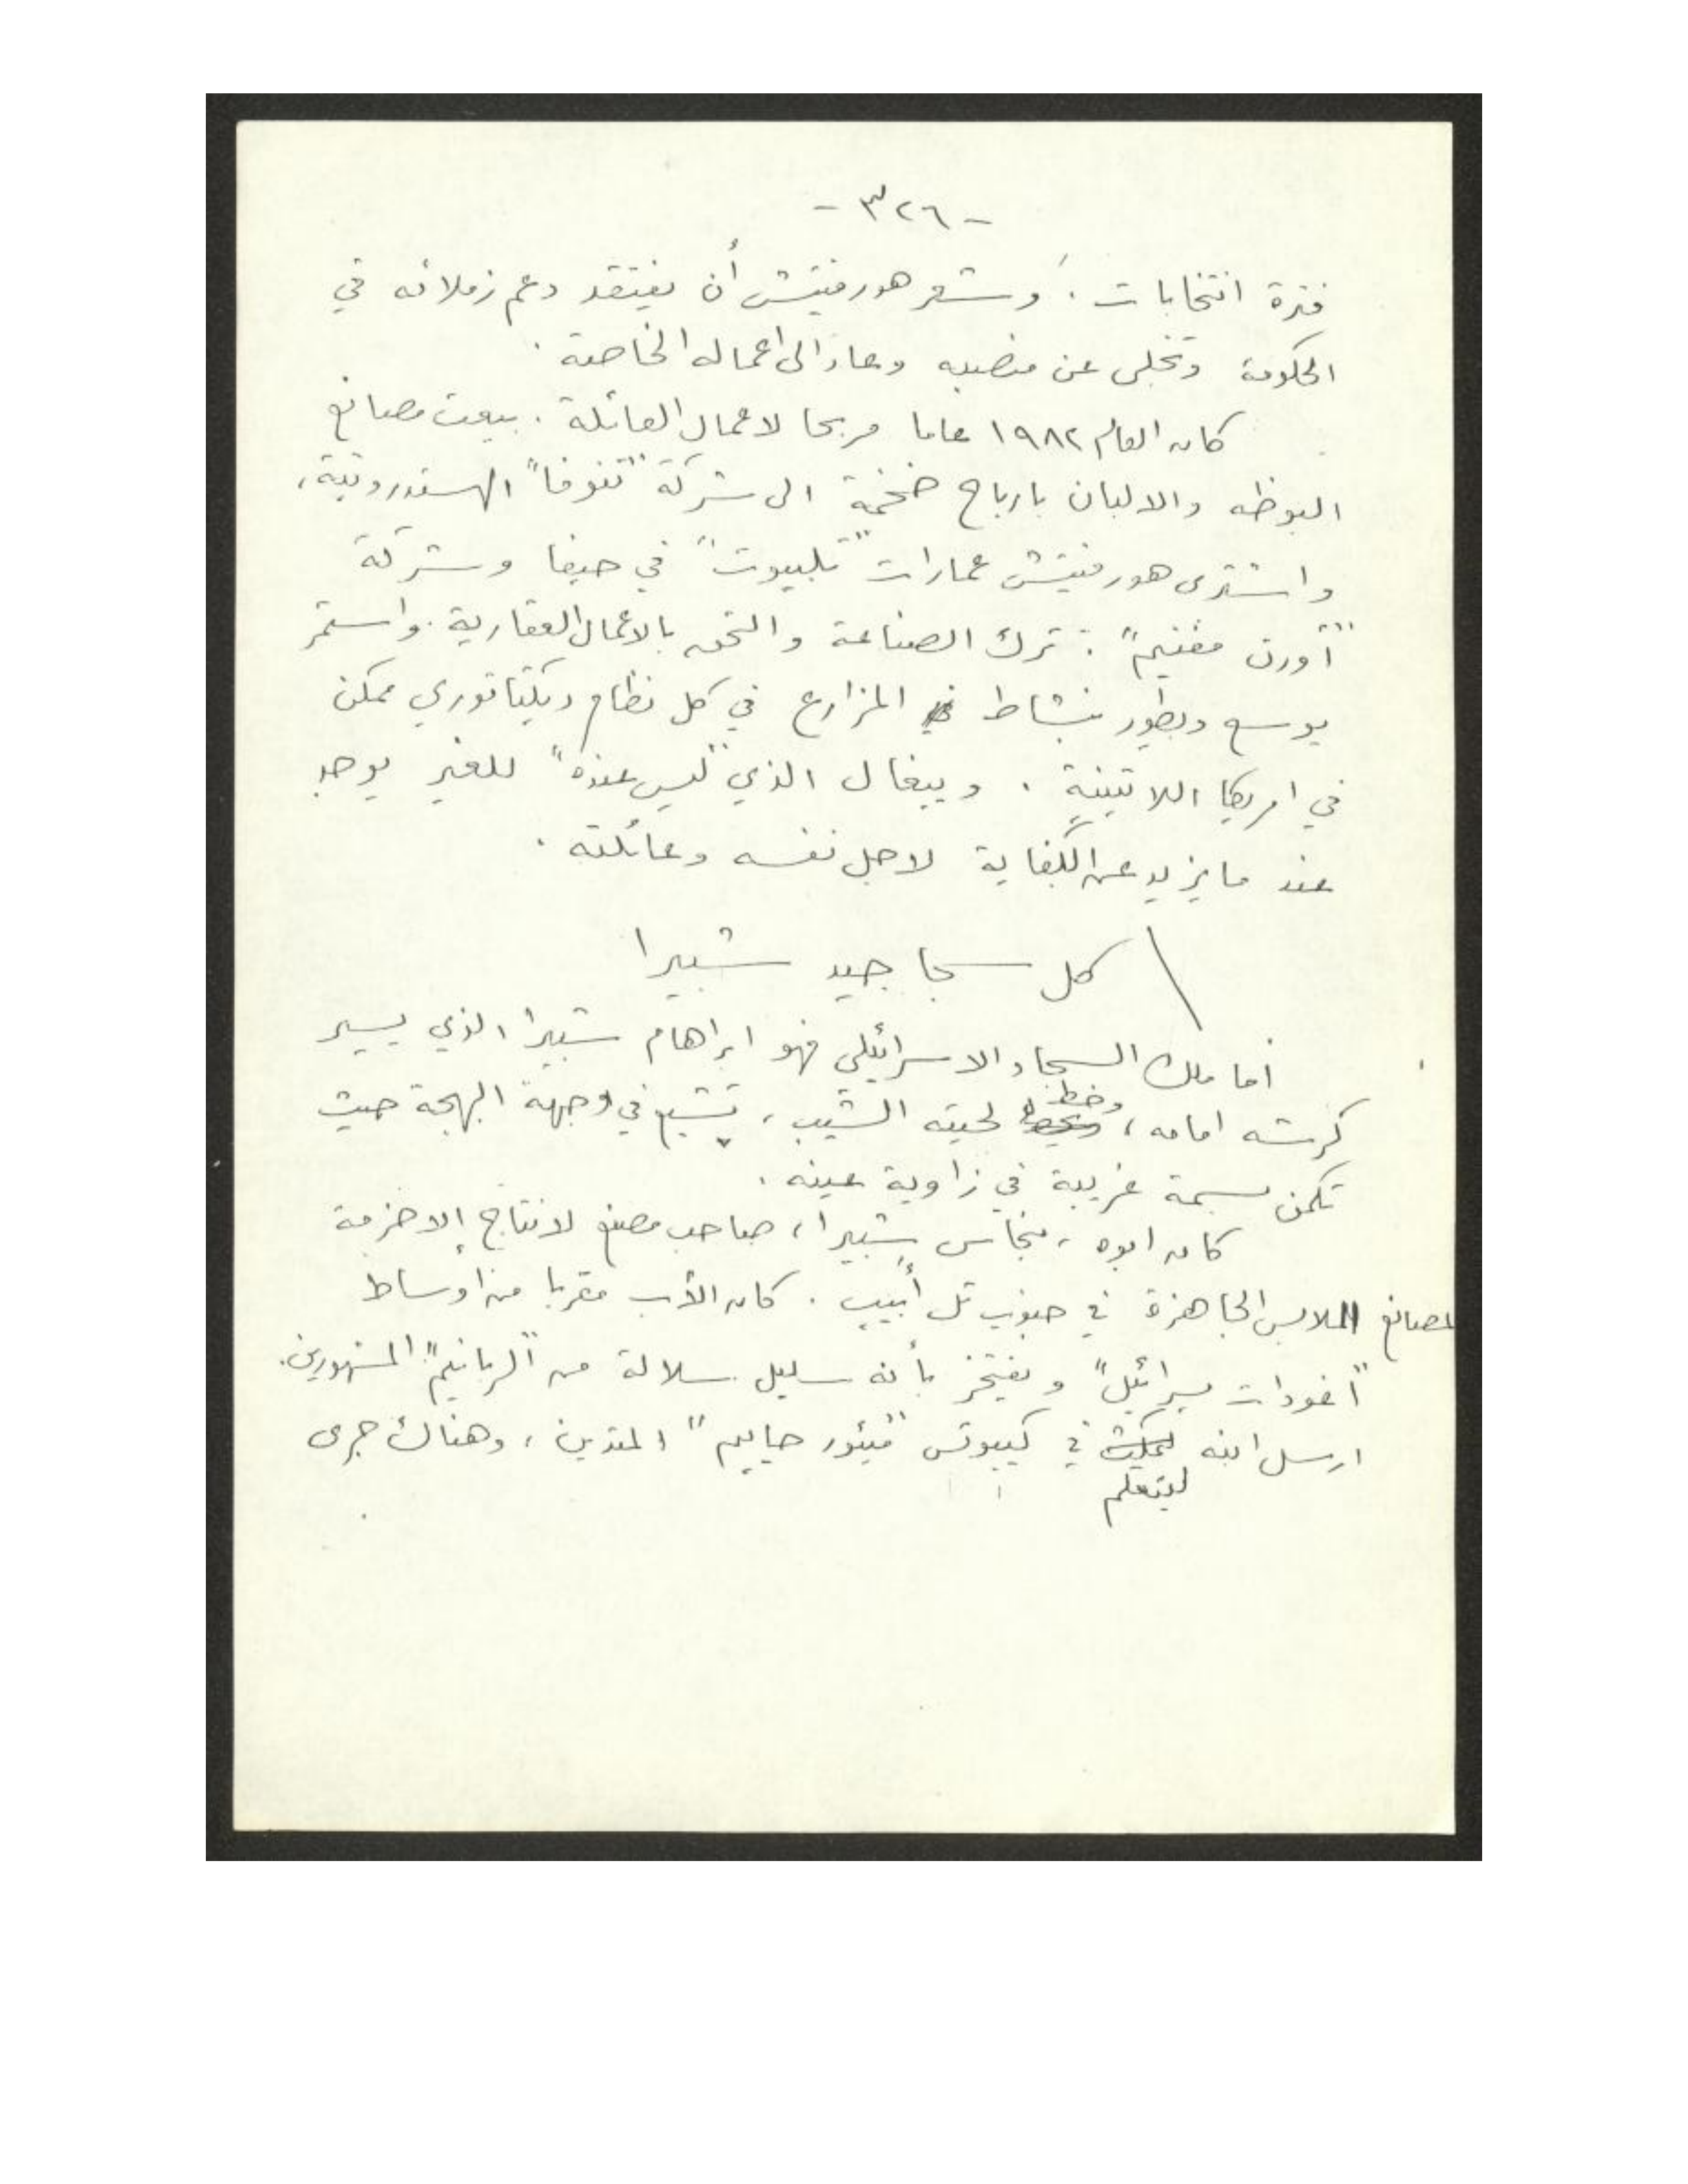 - ٣٢٦ -
فترة انتخابات . وشعر هورفيتش أن يفتقد دعم زملائه في
الحكومة وتخلى عن منصبه وعاد الى اعماله الخاصة .
كان العام ١٩٨٢ عاما مربحا لاعمال العائلة . بيعت مصانع
البوظه والالبان بارباح ضخمة الى شركة "تنوفا" الهستدروتية ،
واشترى هورفيتش عمارات "تلبيوت" في حيفا وشركة
"أورن مفنيم" . ترك الصناعة والتحق بالاعمال العقارية . واستمر
يوسع ويطور بنشاط المزارع في كل نظام ديكتاتوري ممكن
في امريكا اللاتينية . ويبغال الذي "ليس عنده" للغير يوجد
عند ما يزيد عن الكفاية لاجل نفسه وعائلته .
كل سجا جيد شبيرا
أما ملك السجاد الاسرائيلي فهو ابراهام شبيرا الذي يسير
كرشه امامه ، وخط لحيته الشيب ، تشع في وجهه البهجة حيث
تكمن بسمة غريبة في زاوية عينه .
كان ابوه ، شبيرا ، صاحب مصنع لانتاج الاحزمة
لمصانع الملابس الجاهزة في جنوب تل أبيب . كان الأب مقربا من اوساط
"اغودات يسرائيل" ويفتخر بأنه سليل سلالة من "الربانيم" المشهورين .
ارسل ابنه ليتعلم في كيبوتس "حاييم" المتدين ، وهناك جرى